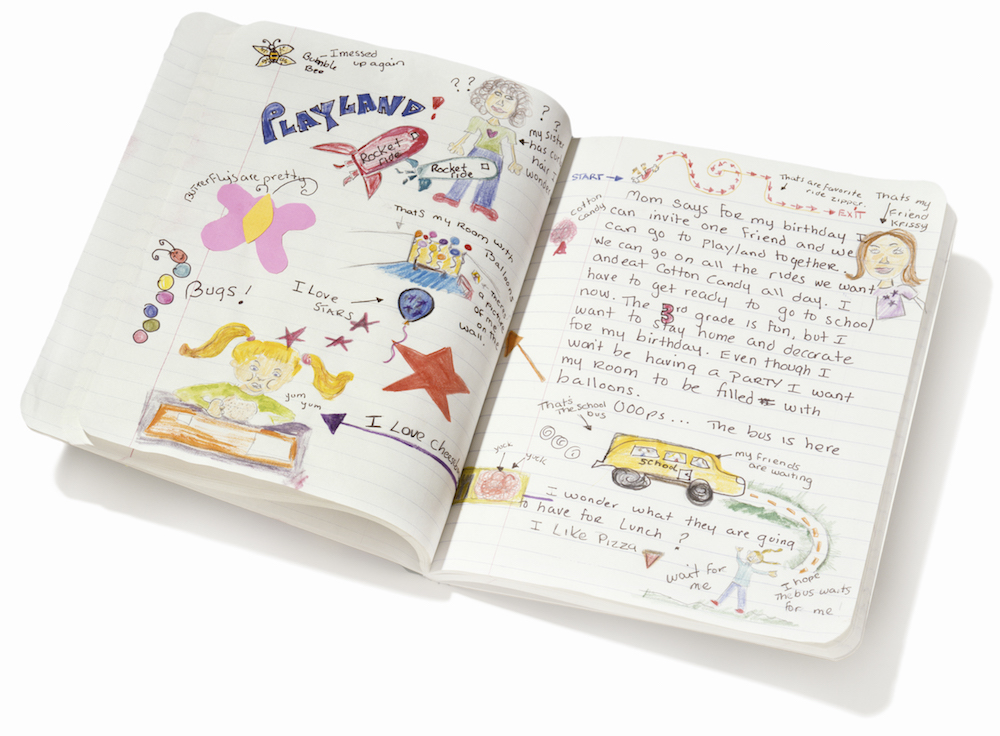 Bumble - I messed
Bee up again
PLAYLAND!
? ?
? ?
my sister
has curly
hair I
wonder
Rocket
ride
Rocket
ride
Butterflys are pretty
Thats my Room with
Balloons
theres
a picture
of me
on the
wall.
Bugs!
I Love
STARS
yum
yum
I LOVE
START
Thats are favorite
ride zipper.
EXIT
Thats my
Friend
Krissy
cotton
candy
Mom says for my birthday I
can invite one friend and we
can go to Playland together.
we can go on all the rides we want
and eat Cotton Candy all day. I
have to get ready to go to school
now. The 3rd grade is fun, but I
want to stay home and decorate
for my birthday. Even though I
won't be having a PARTY I want
my Room to be filled with
balloons.
OOOps.... The bus is here
That's
the school
bus
SCHOOL
my friends
are waiting
yuck
yuck
I wonder what they are going
to have for Lunch?
I Like Pizza
wait for
me
I hope
the bus waits
for me!